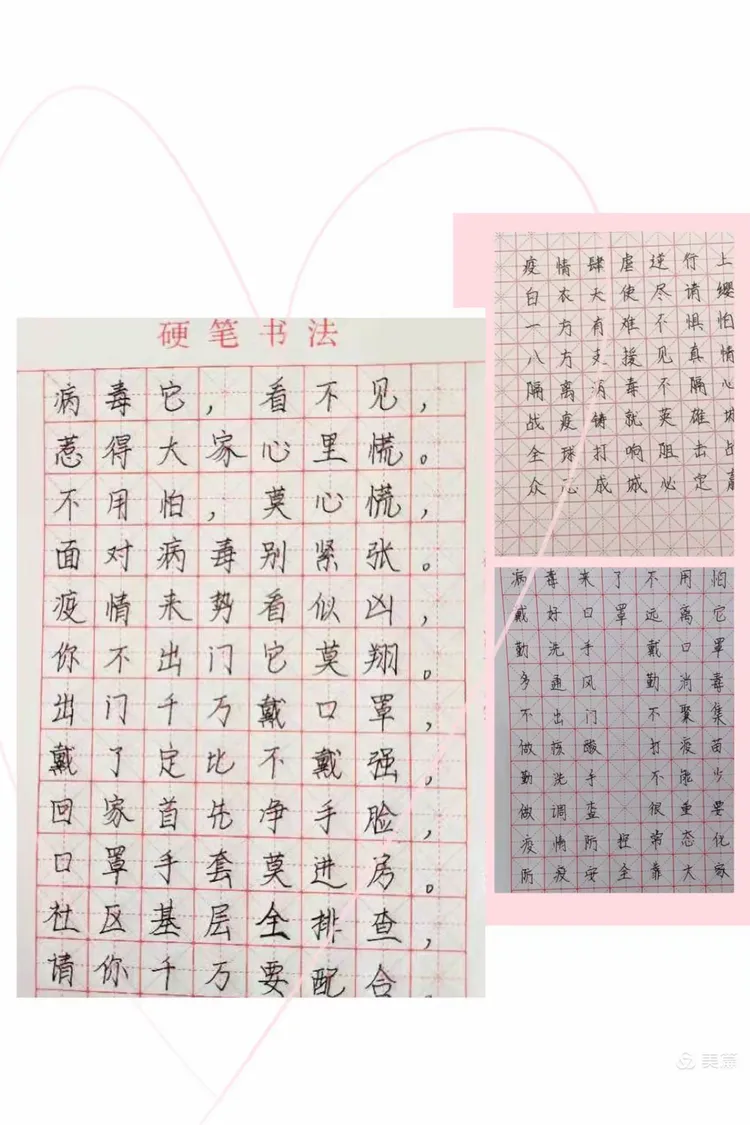 硬笔书法
病毒它，看不见，
惹得大家心里慌。
不用怕，莫心慌，
面对病毒别紧张。
疫情来势看似凶，
你不出门它莫翔。
出门千万戴口罩，
戴了定比不戴强，
回家首先净手脸，
口罩手套莫进房。
社区基层全排查，
请你千万要配合。
疫情肆虐逆行上
白衣天使尽请缨
一方有难不惧怕
八方支援见真情
隔离消毒不隔心
战疫铸就英雄城
全球打响阻击战
众志成城必定赢
病毒来了不用怕
戴好口罩远离它
勤洗手 戴口罩
多通风 勤消毒
不出门 不聚集
做核酸 打疫苗
勤洗手 不能少
做调查 很重要
疫情防控常态化
防疫安全靠大家
美篇